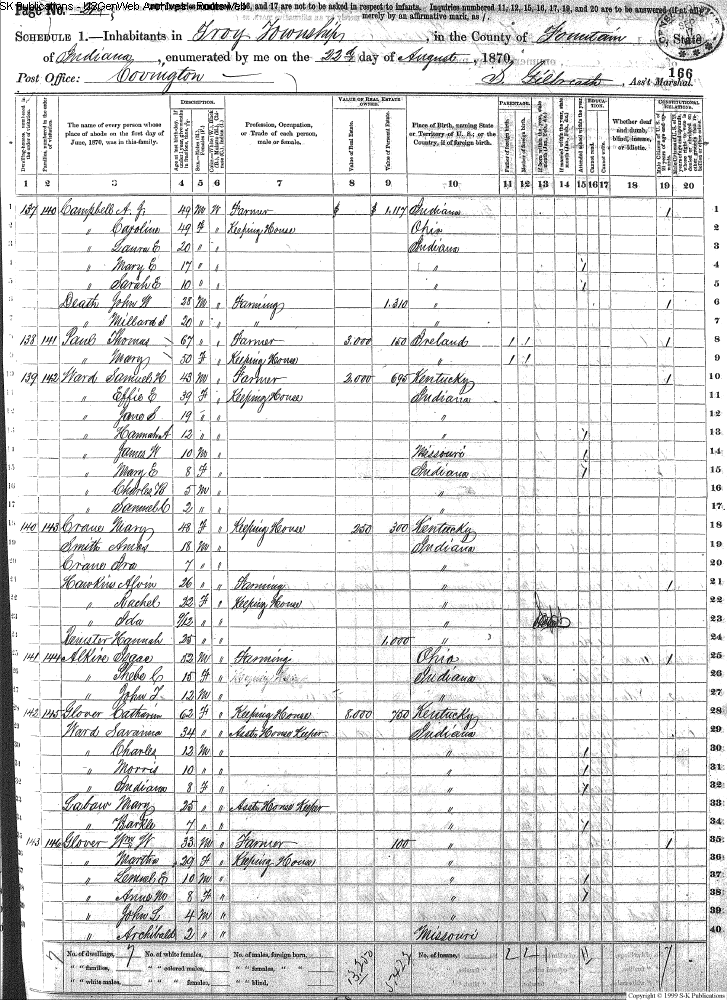 Page No. 21
SK Publications - USGenWeb Archives - Census Project
Inquiries numbered 7, 16, and 17 are not to be asked in respect to infants. Inquiries numbered 11, 12, 15, 16, 17, 19, and 20 are to be answered (if at all)
merely by an affirmative mark, as /.
SCHEDULE 1.—Inhabitants in Troy Township, in the County of Fountain, State
of Indiana, enumerated by me on the 22d day of August, 1870.
Post Office: Covington
S. Gilbreath, Ass't Marshal.
166
Dwelling-houses, numbered in the order of visitation.
Families, numbered in the order of visitation.
The name of every person whose place of abode on the first day of June, 1870, was in this family.
DESCRIPTION.
Profession, Occupation, or Trade of each person, male or female.
VALUE OF REAL ESTATE OWNED.
Value of Real Estate.
Value of Personal Estate.
Place of Birth, naming State or Territory of U. S.; or the Country, if of foreign birth.
PARENTAGE.
Father of foreign birth.
Mother of foreign birth.
EDUCATION.
Attended school within the year.
Cannot read.
Cannot write.
Whether deaf and dumb, blind, insane, or idiotic.
CONSTITUTIONAL RELATIONS.
1 2 3 4 5 6 7 8 9 10 11 12 13 14 15 16 17 18 19 20
1 137 140 Campbell A. J. 49 M W Farmer $ $ 1,117 Indiana / 1
2 " Caroline 49 F " Keeping House Ohio 2
3 " Laura E 20 " " Indiana 3
4 " Mary E 17 " " " / 4
5 " Sarah E 10 " " " / 5
6 Death John W 28 M " Farming 1,310 " / 6
7 " Millard S 20 " " " " 7
8 138 141 Paul Thomas 67 " " Farmer 3,000 150 Ireland / / / 8
9 " Mary 50 F " Keeping House " / / 9
10 139 142 Ward Samuel H 43 M " Farmer 2,000 695 Kentucky / 10
11 " Effie E 39 F " Keeping House Indiana 11
12 " Jane S 19 " " " 12
13 " Hannah A 12 " " " / 13
14 " James W 10 M " Missouri / 14
15 " Mary E 8 F " Indiana / 15
16 " Charles B 5 M " " 16
17 " Samuel C 2 " " " 17
18 140 143 Crane Mary 48 F " Keeping House 250 300 Kentucky 18
19 Smith Amos 18 M " Indiana 19
20 Crane Ira 7 " " " 20
21 Hawkins Alvin 26 " " Farming " / 21
22 " Rachel 22 F " Keeping House " 22
23 " Ida 9/12 " " " 23
24 Hannah 25 " " 1,000 " 24
25 141 144 Alkire 52 M " Farming Ohio / 25
26 " Phebe C 15 F " Indiana 26
27 " John T. 12 M " " 27
28 142 145 Glover Catharine 62 F " Keeping House 8,000 750 Kentucky 28
29 Ward Savanna 34 " " Asst. House Keeper Indiana 29
30 " Charles 12 M " " / 30
31 " Morris 10 " " " / 31
32 " Indiana 8 F " " / 32
33 Labaw Mary 25 " " Asst. House Keeper " 33
34 " 7 " " " / 34
35 143 146 Glover Wm. W 33 M " Farmer 100 " / 35
36 " Martha 29 F " Keeping House " 36
37 " Lemuel E 10 M " " / 37
38 " Anne M 8 F " " / 38
39 " John S. 4 M " " 39
40 " Archibald 2 " " Missouri 40
No. of dwellings, 7 No. of white females, No. of males, foreign born, 13,250 No. of insane,
" " families, " " colored males, " " females, " "
" " white males, " " females, " " blind,
Copyright © 1999 S-K Publications